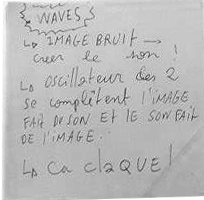 WAVES
↳ IMAGE BRUIT →
créer le son !
↳ oscillateur des 2
se complètent l'IMAGE
FAIT DE SON ET LE SON FAIT
DE L'IMAGE..
↳ Ca claQUE !